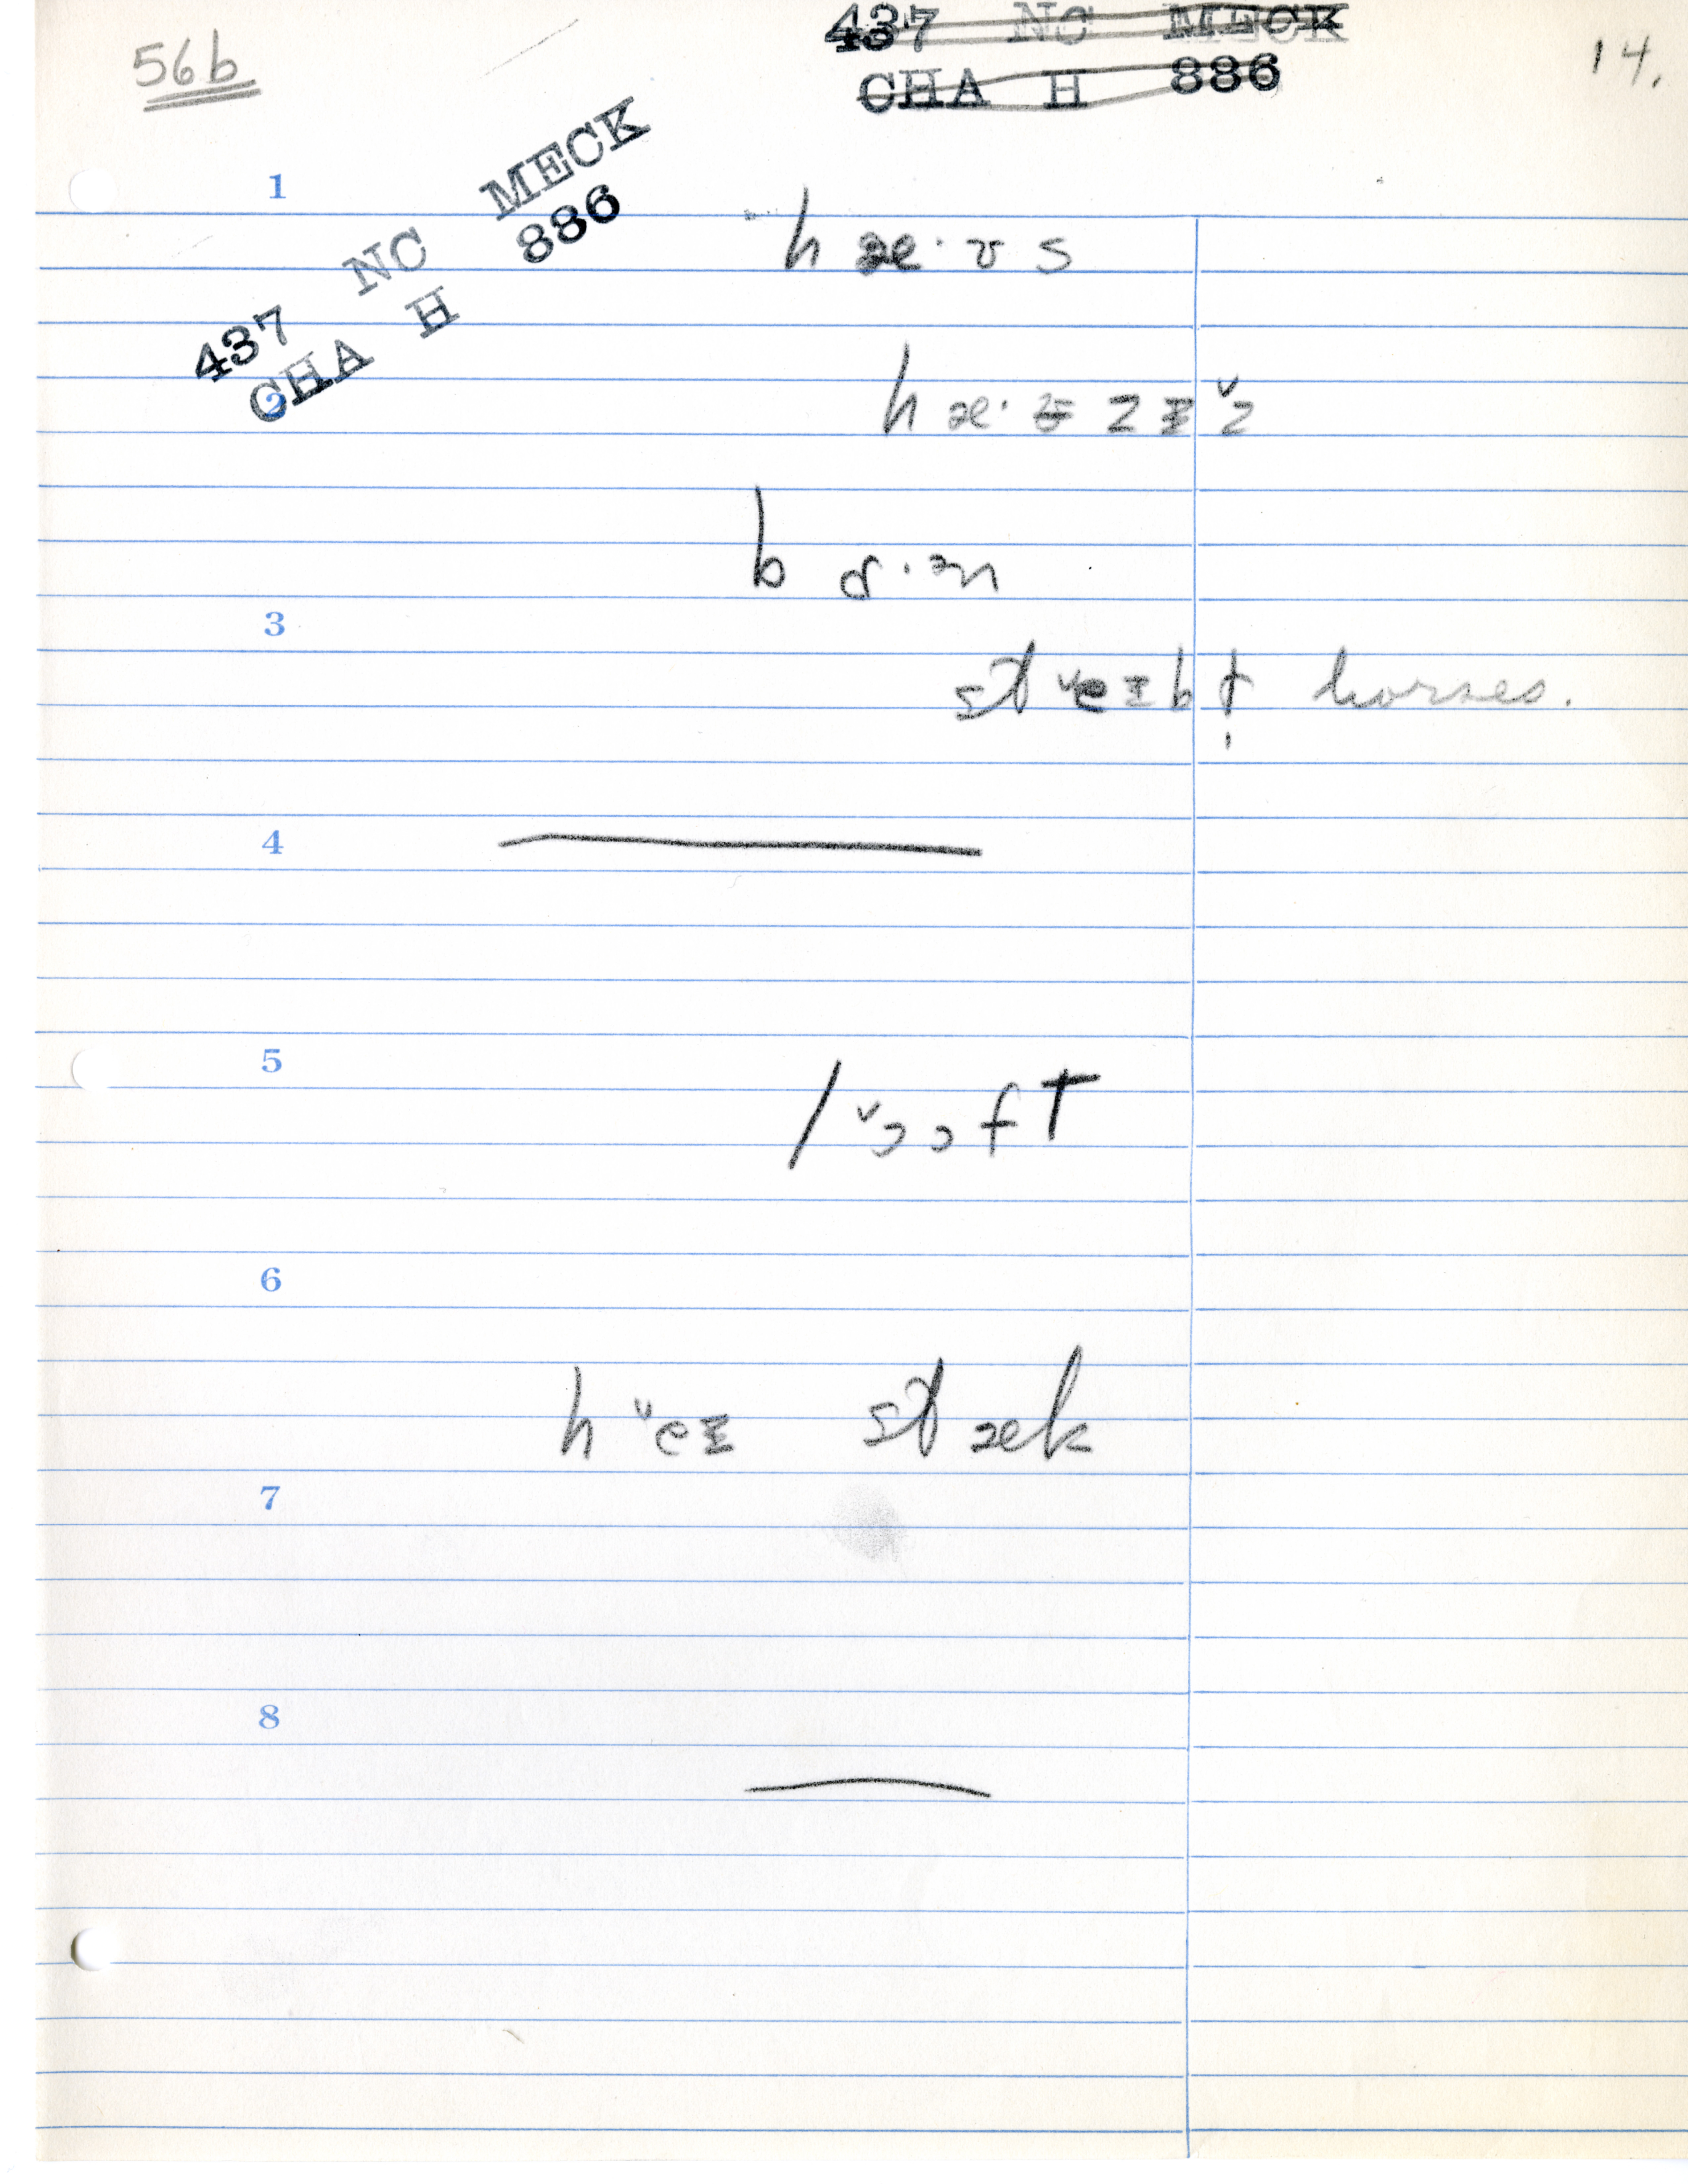 437 NC MECK
CHA H 886
56b
14.
437 NC MECK
CHA H 886
1
h æ· ʊ s
2
h æ· ʊ z ɪ ˅z
3
st ˅eɪb ḷ horses.
4
5
l ˅ɔɔft
6
h ˅eɪ stæk
7
8